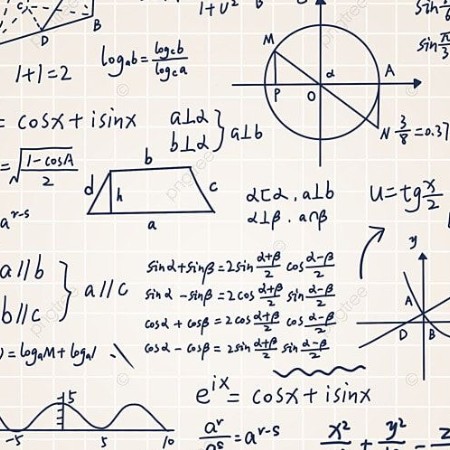 C
D
B
1+U²
sin π/6
sin π/3
log_a b = log_c b / log_c a
1+1=2
M
α
A
P
O
N
3/8 = 0.37
= cosx + isinx
a⊥α
b⊥α } a⊥b
= √((1-cosA)/2)
b
d
h
c
a
α⊏α . a⊥b
α⊥β . a∩β
u = tg x/2
a^(r-s)
a//b
b//c } a//c
sinα+sinβ = 2sin (α+β)/2 cos (α-β)/2
sinα - sinβ = 2cos (α+β)/2 sin (α-β)/2
cosα + cosβ = 2cos (α+β)/2 cos (α-β)/2
cosα - cosβ = 2sin (α+β)/2 sin (α-β)/2
y
A
D
B
) = log_a M + log_a
e^(ix) = cosx + isinx
5
-5
5
10
a^r / a^s = a^(r-s)
x²/ + y²/ - z
pngtree